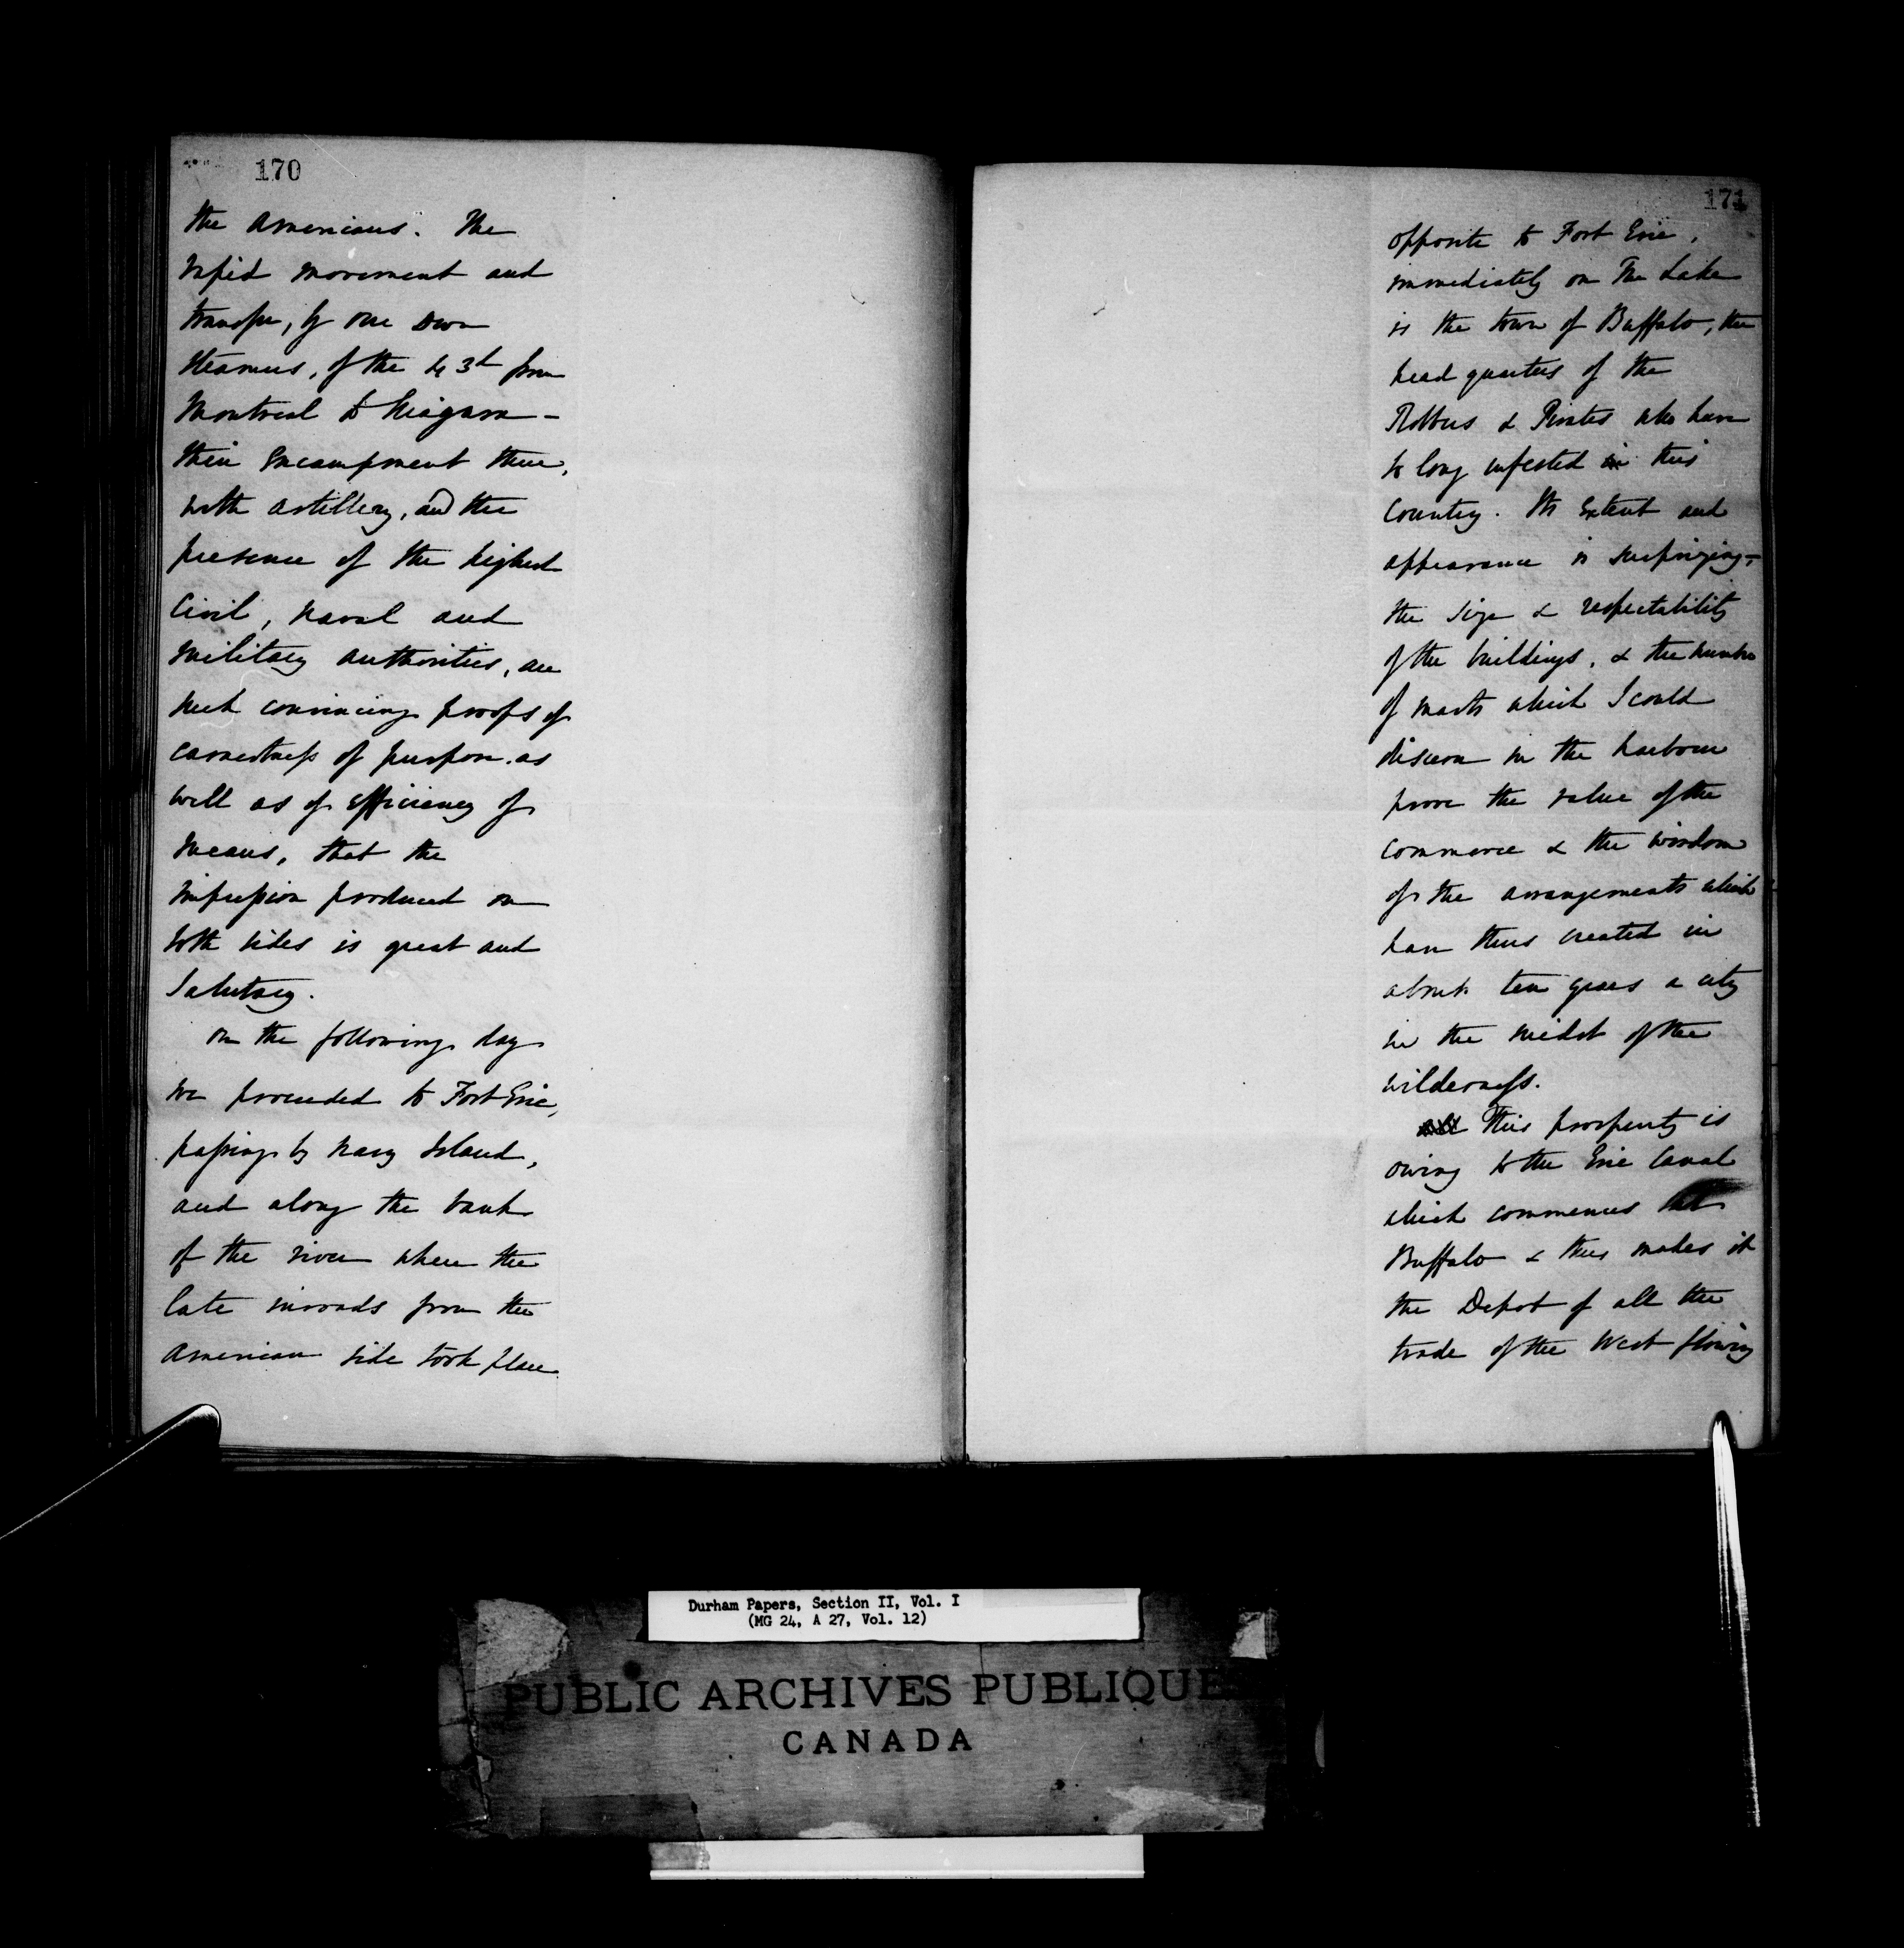 170
the Americans. The
rapid movement and
transfer, by our own
steamers, of the 43d from
Montreal to Niagara –
their encampment there,
with artillery, and the
presence of the highest
Civil, Naval and
Military authorities, are
such convincing proofs of
earnestness of purpose as
well as of efficiency of
means, that the
impression produced on
both sides is great and
salutary.
On the following day
we proceeded to Fort Erie,
passing by Navy Island,
and along the bank
of the river where the
late inroads from the
American side took place.
171
opposite to Fort Erie,
immediately on The Lake
is the town of Buffalo, the
head quarters of the
Robbers & Pirates who have
so long infested in this
Country. Its extent and
appearance is surprizing –
the size & respectability
of the buildings, & the number
of masts which I could
discern in the harbour
prove the value of the
commerce & the wisdom
of the arrangements which
have thus created in
about ten years a city
in the midst of the
wilderness.
All This prosperity is
owing to the Erie Canal
which commences at
Buffalo & thus makes it
the Depot of all the
trade of the West flowing
Durham Papers, Section II, Vol. I
(MG 24, A 27, Vol. 12)
PUBLIC ARCHIVES PUBLIQUES
CANADA